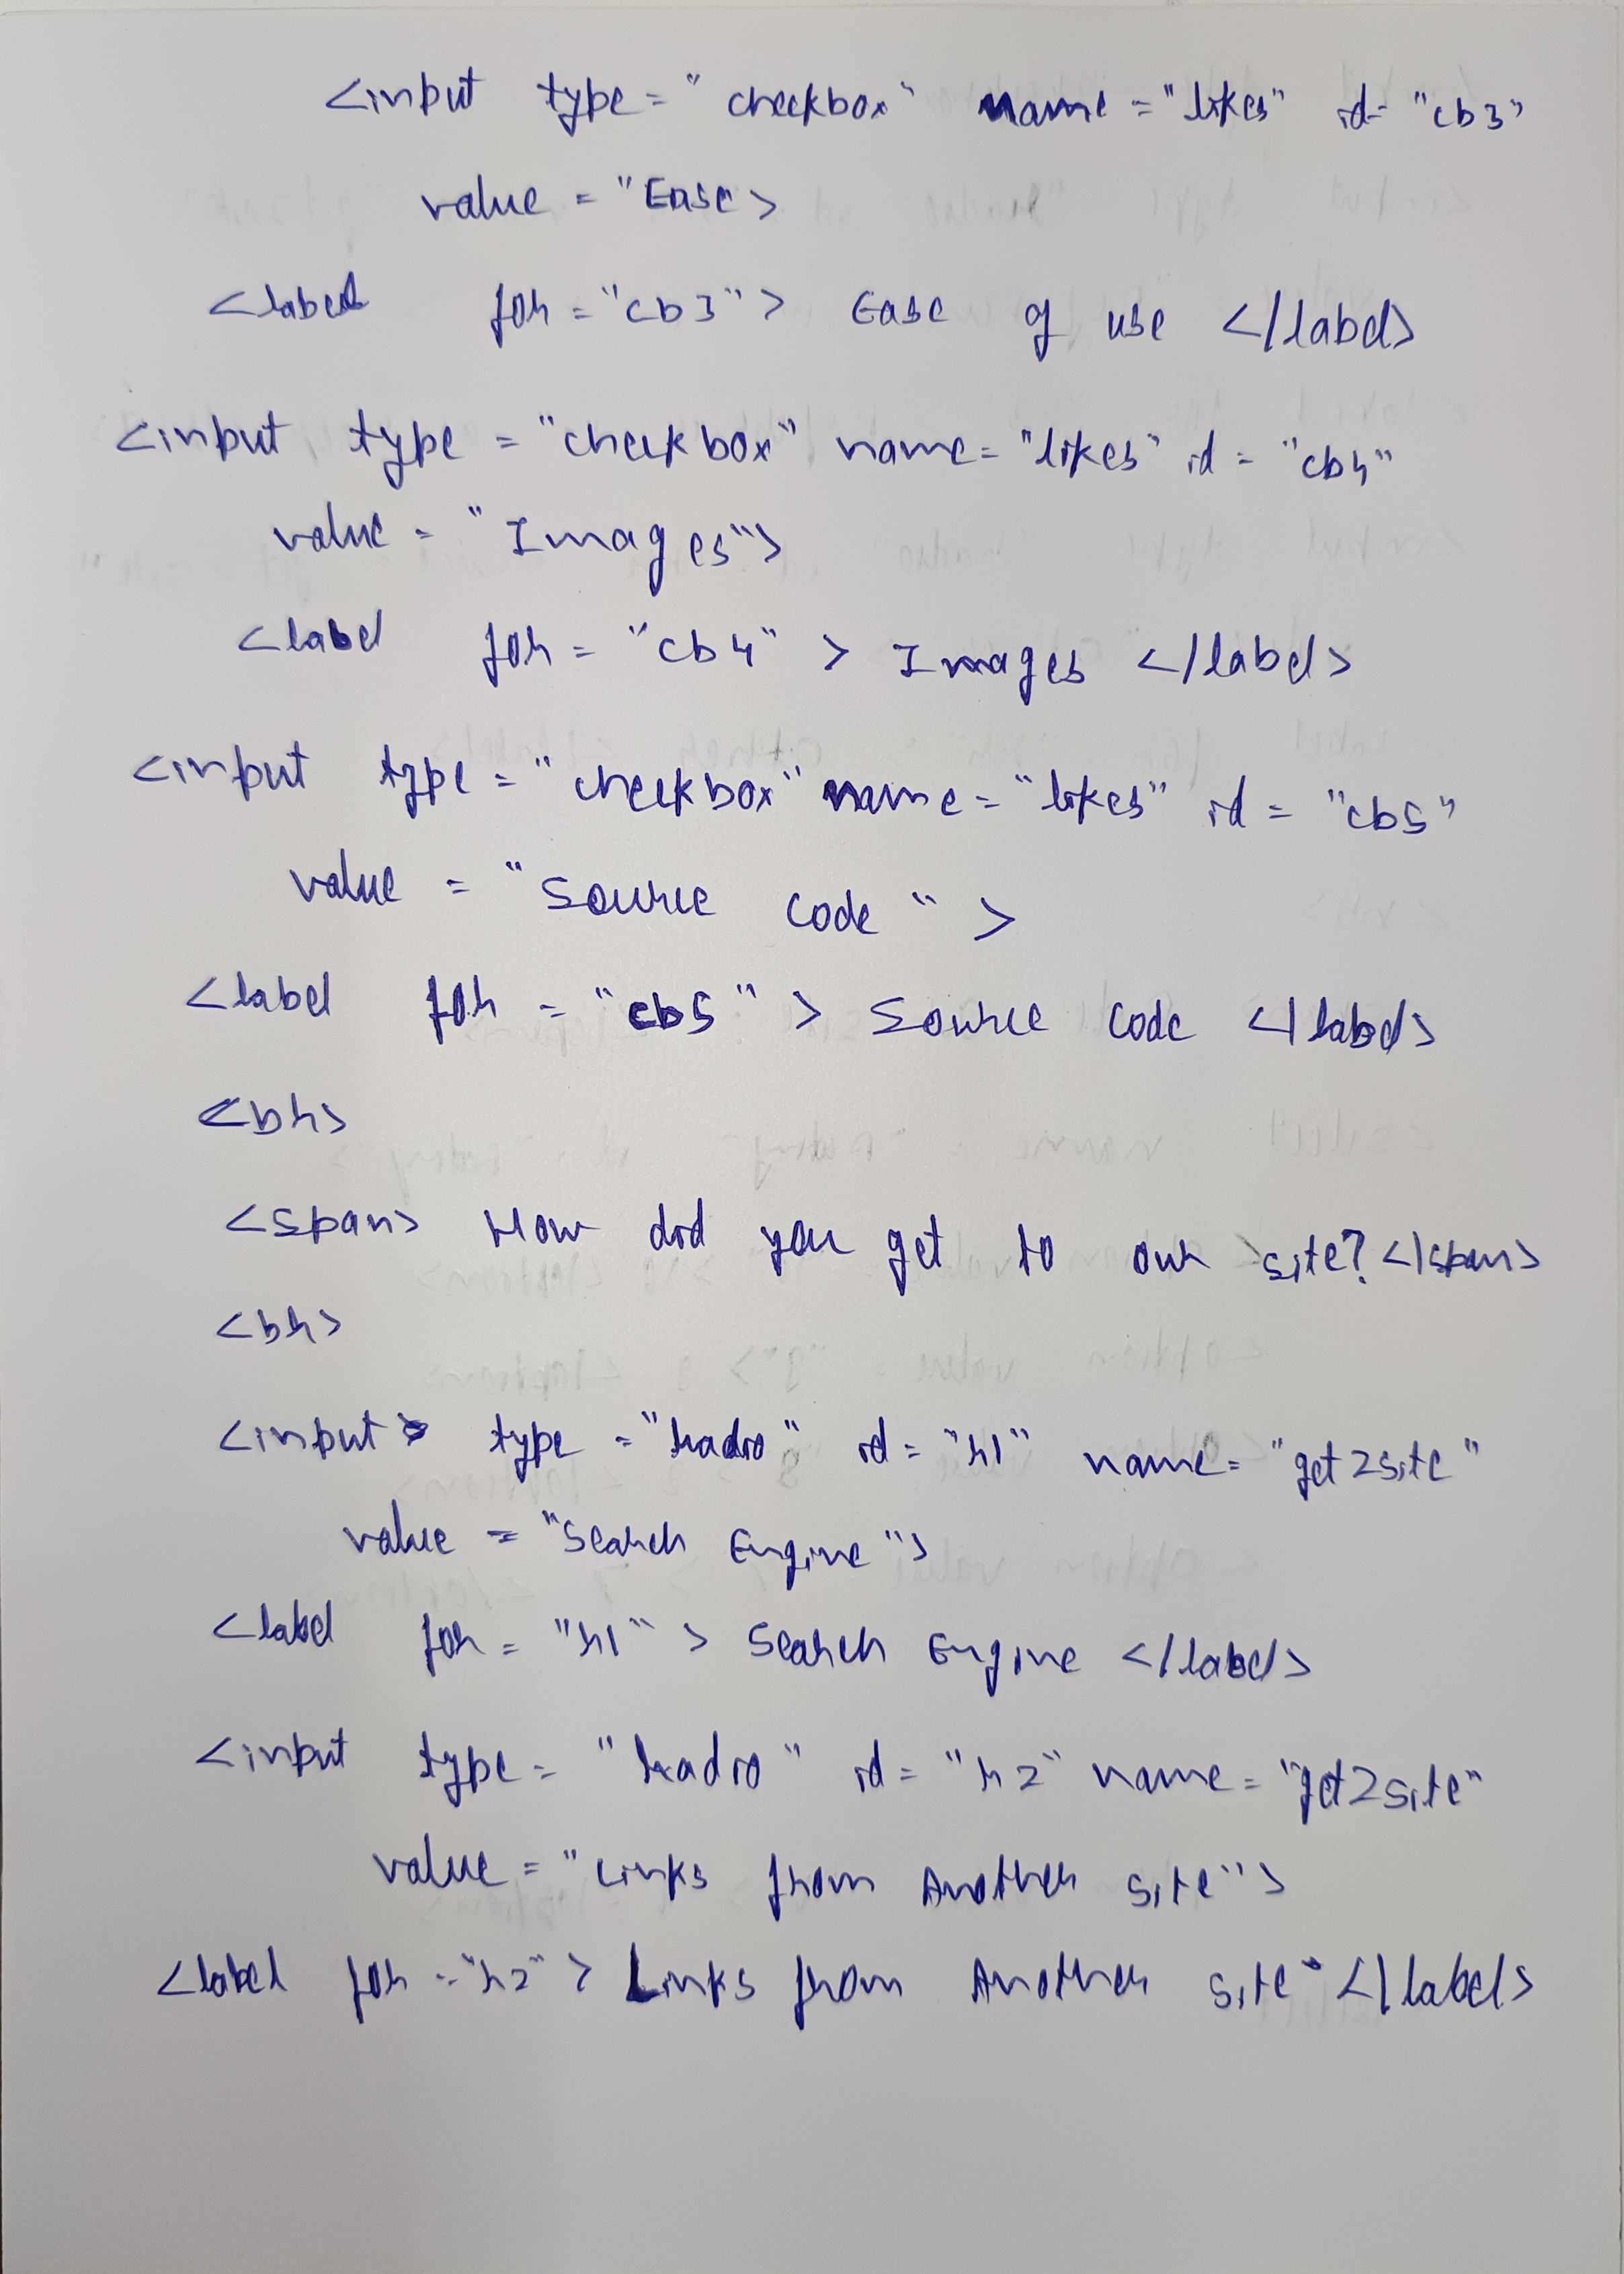 <input type = "checkbox" name = "likes" id = "cb3"
value = "Ease>
<label for = "cb3"> Ease of use </label>
<input type = "checkbox" name = "likes" id = "cb4"
value = "Images">
<label for = "cb4" > Images </label>
<input type = "checkbox" name = "likes" id = "cb5"
value = "Source Code" >
<label for = "cb5" > Source Code </label>
<br>
<span> How did you get to our site? </span>
<br>
<input type = "radio" id = "r1" name = "get2site"
value = "Search Engine">
<label for = "r1" > Search Engine </label>
<input type = "radio" id = "r2" name = "get2site"
value = "Links from Another site">
<label for = "r2" > Links from Another site </label>